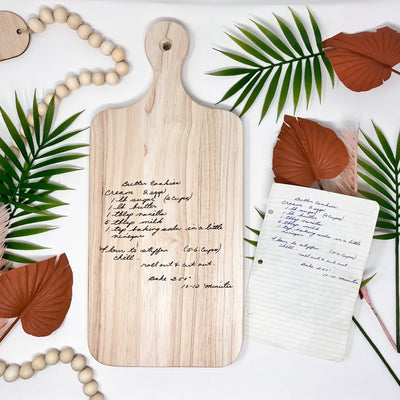 Butter Cookies
Cream 2 eggs
1 lb sugar (2 Cups)
1 lb butter
1 tblsp vanilla
5 tblsp milk
1 tsp baking soda in a little
vinegar
Flour to stiffen (5-6 Cups)
Chill.
roll out & cut out.
Bake 350°
10-12 minutes
Butter Cookies
Cream 2 eggs
1 lb sugar (2 Cups)
1 lb butter
1 tblsp vanilla
5 tblsp milk
1 tsp baking soda in a little
vinegar
Flour to stiffen (5-6 Cups)
Chill.
roll out & cut out
Bake 350°
10-12 minutes